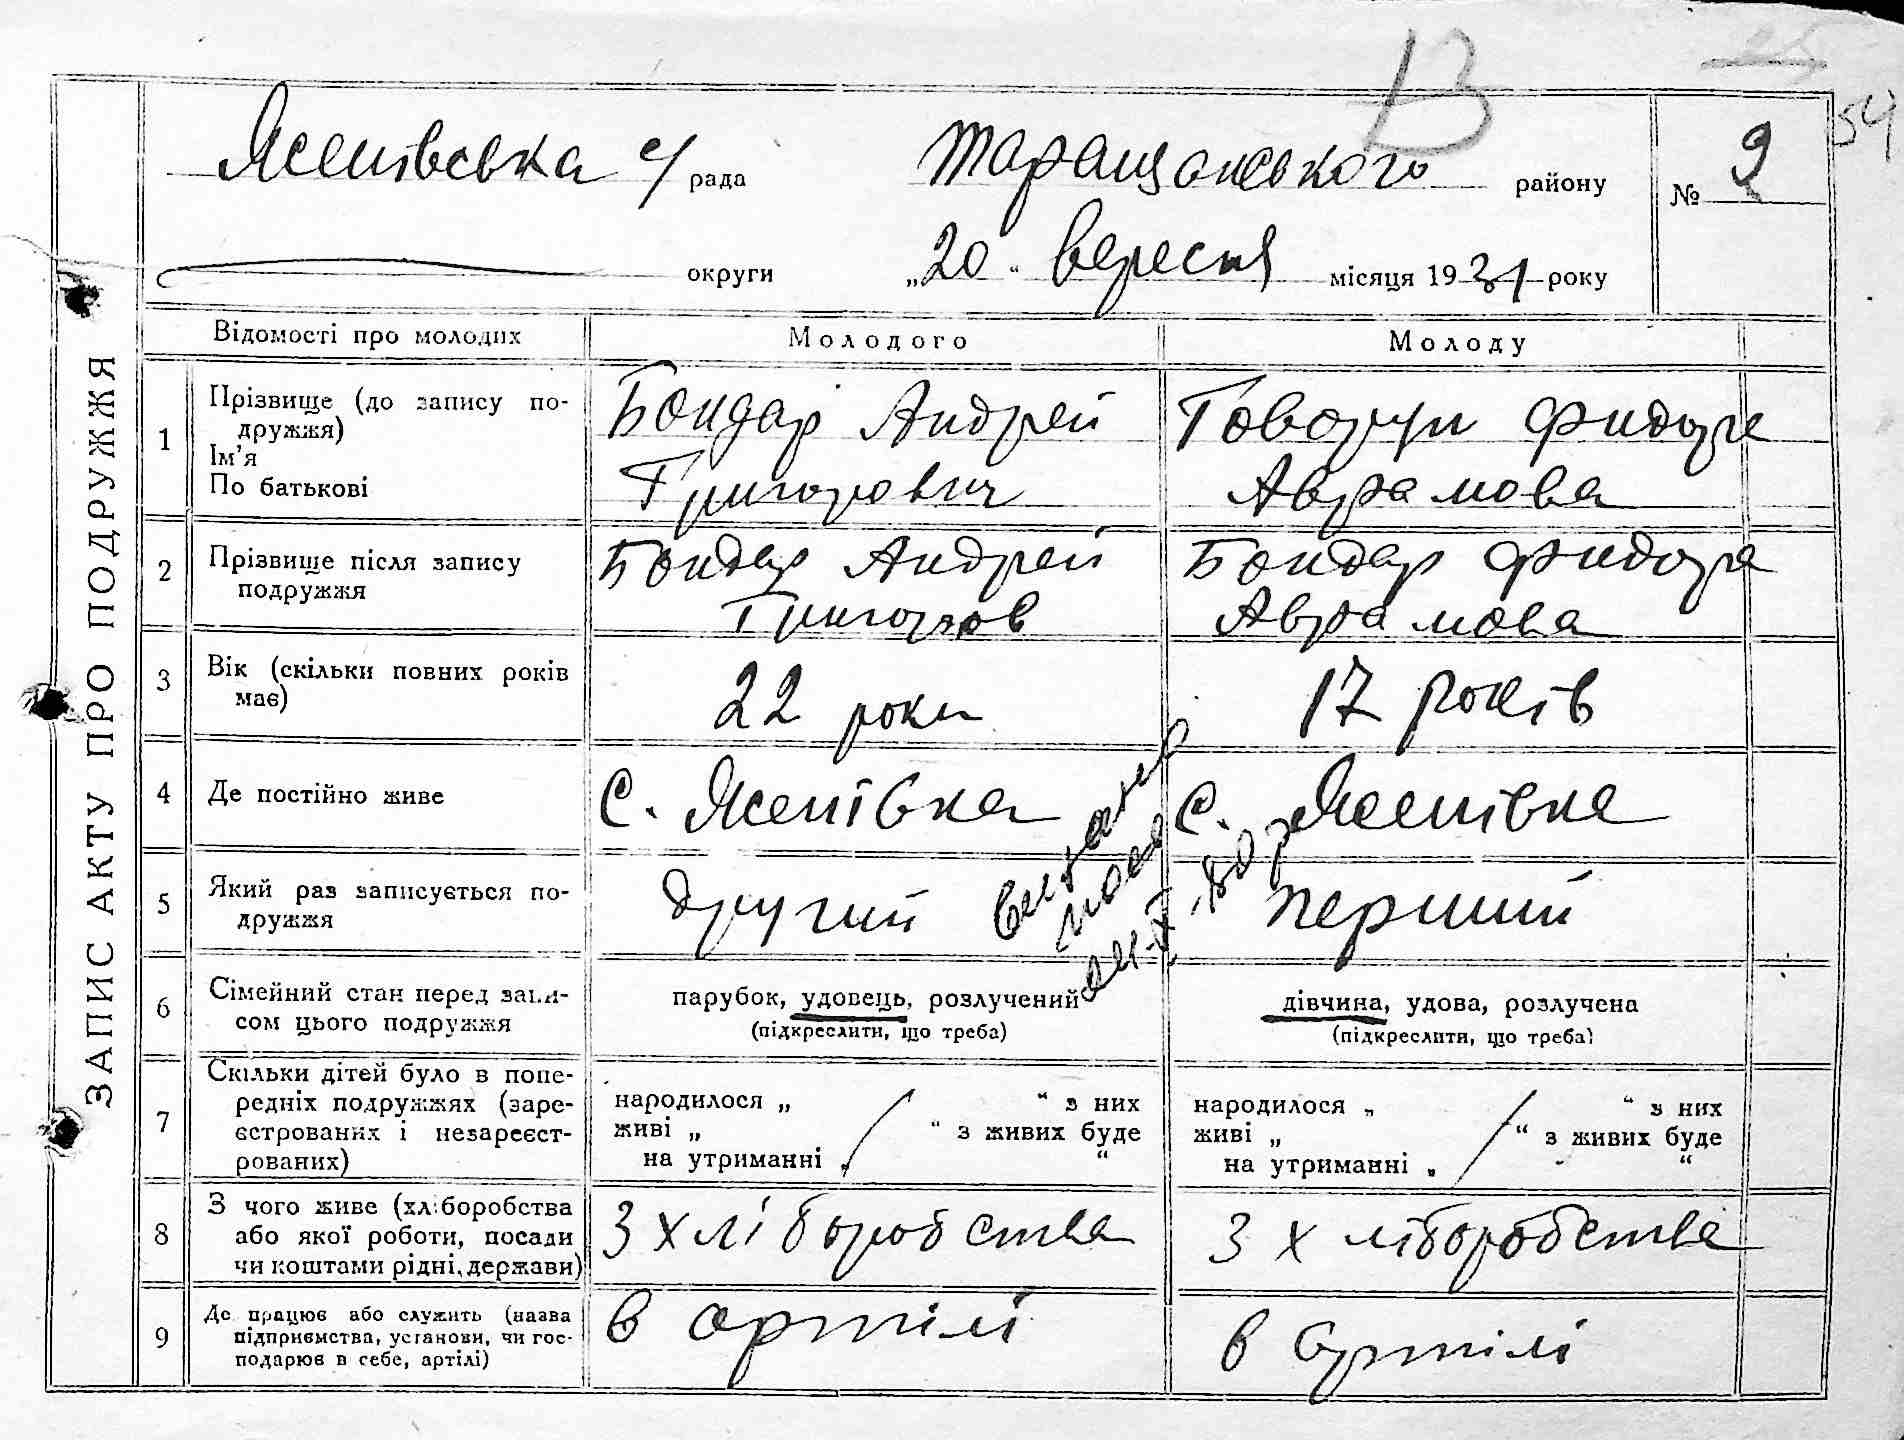 В
54
ЗАПИС АКТУ ПРО ПОДРУЖЖЯ
Ясенівська с/ рада Таращанського району № 9
округи „20“ вересня місяця 1931 року
Відомості про молодих Молодого Молоду
1 Прізвище (до запису по-
дружжя)
Ім'я
По батькові
Бондар Андрей
Григорович
Говорун Фидора
Аврамова
2 Прізвище після запису
подружжя
Бондар Андрей
Григоров
Бондар Фидора
Аврамова
3 Вік (скільки повних років
має)
22 роки
17 років
4 Де постійно живе
С. Ясенівка
С. Ясенівка
5 Який раз записується по-
дружжя
другий
перший
6 Сімейний стан перед запи-
сом цього подружжя
парубок, удовець, розлучений
(підкреслити, що треба)
дівчина, удова, розлучена
(підкреслити, що треба)
7 Скільки дітей було в попе-
редніх подружжях (заре-
єстрованих і незареєст-
рованих)
народилося „ “ з них
живі „ “ з живих буде
на утриманні „ “
народилося „ “ з них
живі „ “ з живих буде
на утриманні „ “
8 З чого живе (хліборобства
або якої роботи, посади
чи коштами рідні, держави)
З хліборобства
З хліборобства
9 Де працює або служить (назва
підприємства, установи, чи гос-
подарює в себе, артілі)
в артілі
в артілі